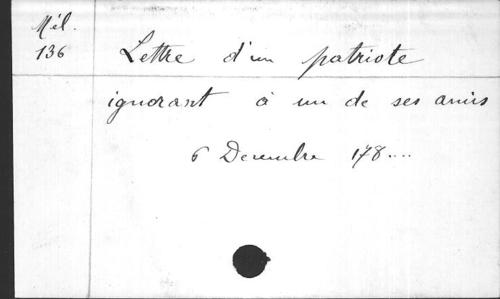 Mél.
136
Lettre d'un patriote
ignorant à un de ses amis
6 Decembre 178....